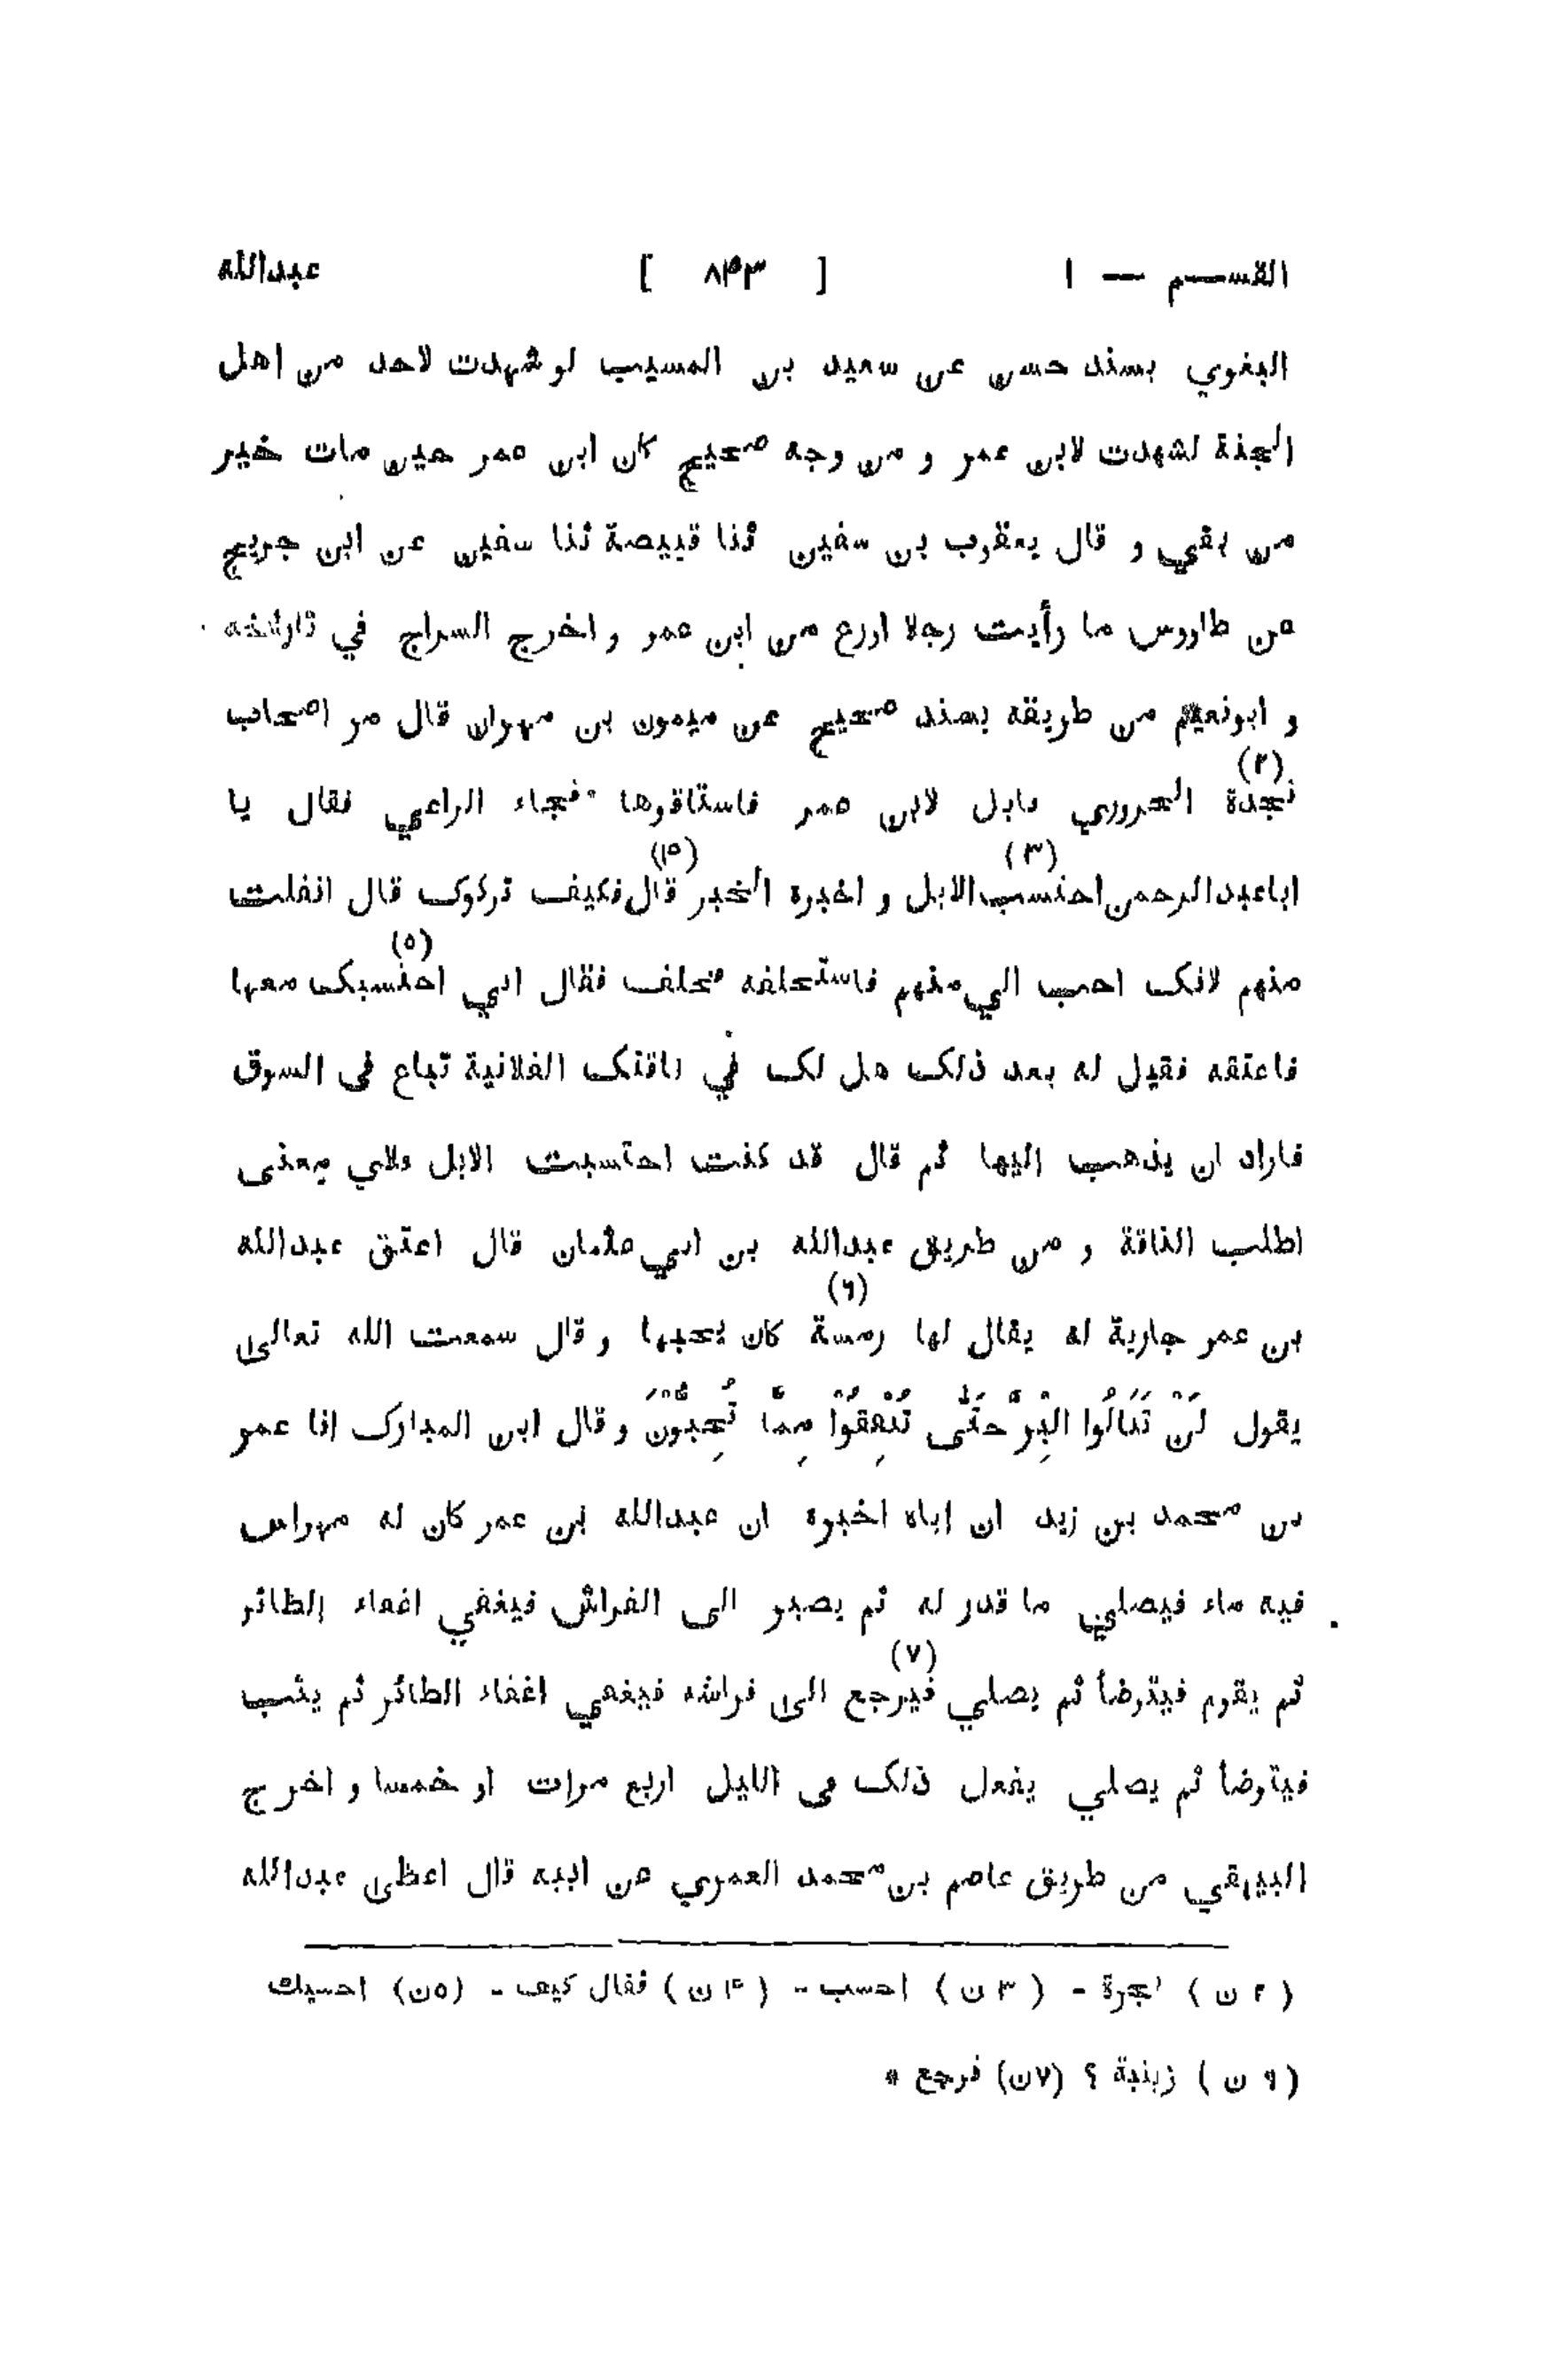 القسم — ١ [ ٨٤٣ ] عبدالله
البغوي بسند حسن عن سعيد بن المسيب لو شهدت لاحد من اهل
الجنة لشهدت لابن عمر و من وجه صحيح كان ابن عمر حين مات خير
من بقي و قال يعقوب بن سفين ثنا قبيصة ثنا سفين عن ابن جريج
عن طاووس ما رأيت رجلا اورع من ابن عمر و اخرج السراج في تاريخه
و ابونعيم من طريقه بسند صحيح عن ميمون بن مهران قال مر اصحاب
نجدة (٢) الحروري بابل لابن عمر فاستاقوها فجاء الراعي فقال يا
اباعبدالرحمن احتسب (٣) الابل و اخبره الخبر قال (٤) فكيف تركوك قال انفلت
منهم لانك احب الي منهم فاستحلفه فحلف فقال اني احتسبك (٥) معها
فاعتقه فقيل له بعد ذلك هل لك في ناقتك الفلانية تباع في السوق
فاراد ان يذهب اليها ثم قال قد كنت احتسبت الابل فلاي معنى
اطلب الناقة و من طريق عبدالله بن ابي عثمان قال اعتق عبدالله
بن عمر جارية له يقال لها رمسة (٦) كان يحبها و قال سمعت الله تعالى
يقول لَنْ تَنَالُوا الْبِرَّ حَتّٰى تُنْفِقُوْا مِمَّا تُحِبُّوْنَ و قال ابن المبارك انا عمر
بن محمد بن زيد ان اباه اخبره ان عبدالله بن عمر كان له مهراس
فيه ماء فيصلي ما قدر له ثم يصير الى الفراش فيغفي اغفاء الطائر
ثم يقوم فيتوضأ ثم يصلي فيرجع (٧) الى فراشه فيغفي اغفاء الطائر ثم يثب
فيتوضأ ثم يصلي يفعل ذلك في الليل اربع مرات او خمسا و اخرج
البيهقي من طريق عاصم بن محمد العمري عن ابيه قال اعطى عبدالله
( ٢ ن ) نجرة - ( ٣ ن ) احسب - ( ٤ ن ) فقال كيف - (٥ن) احسبك
( ٦ ن ) زينبة ؟ (٧ن) فرجع *